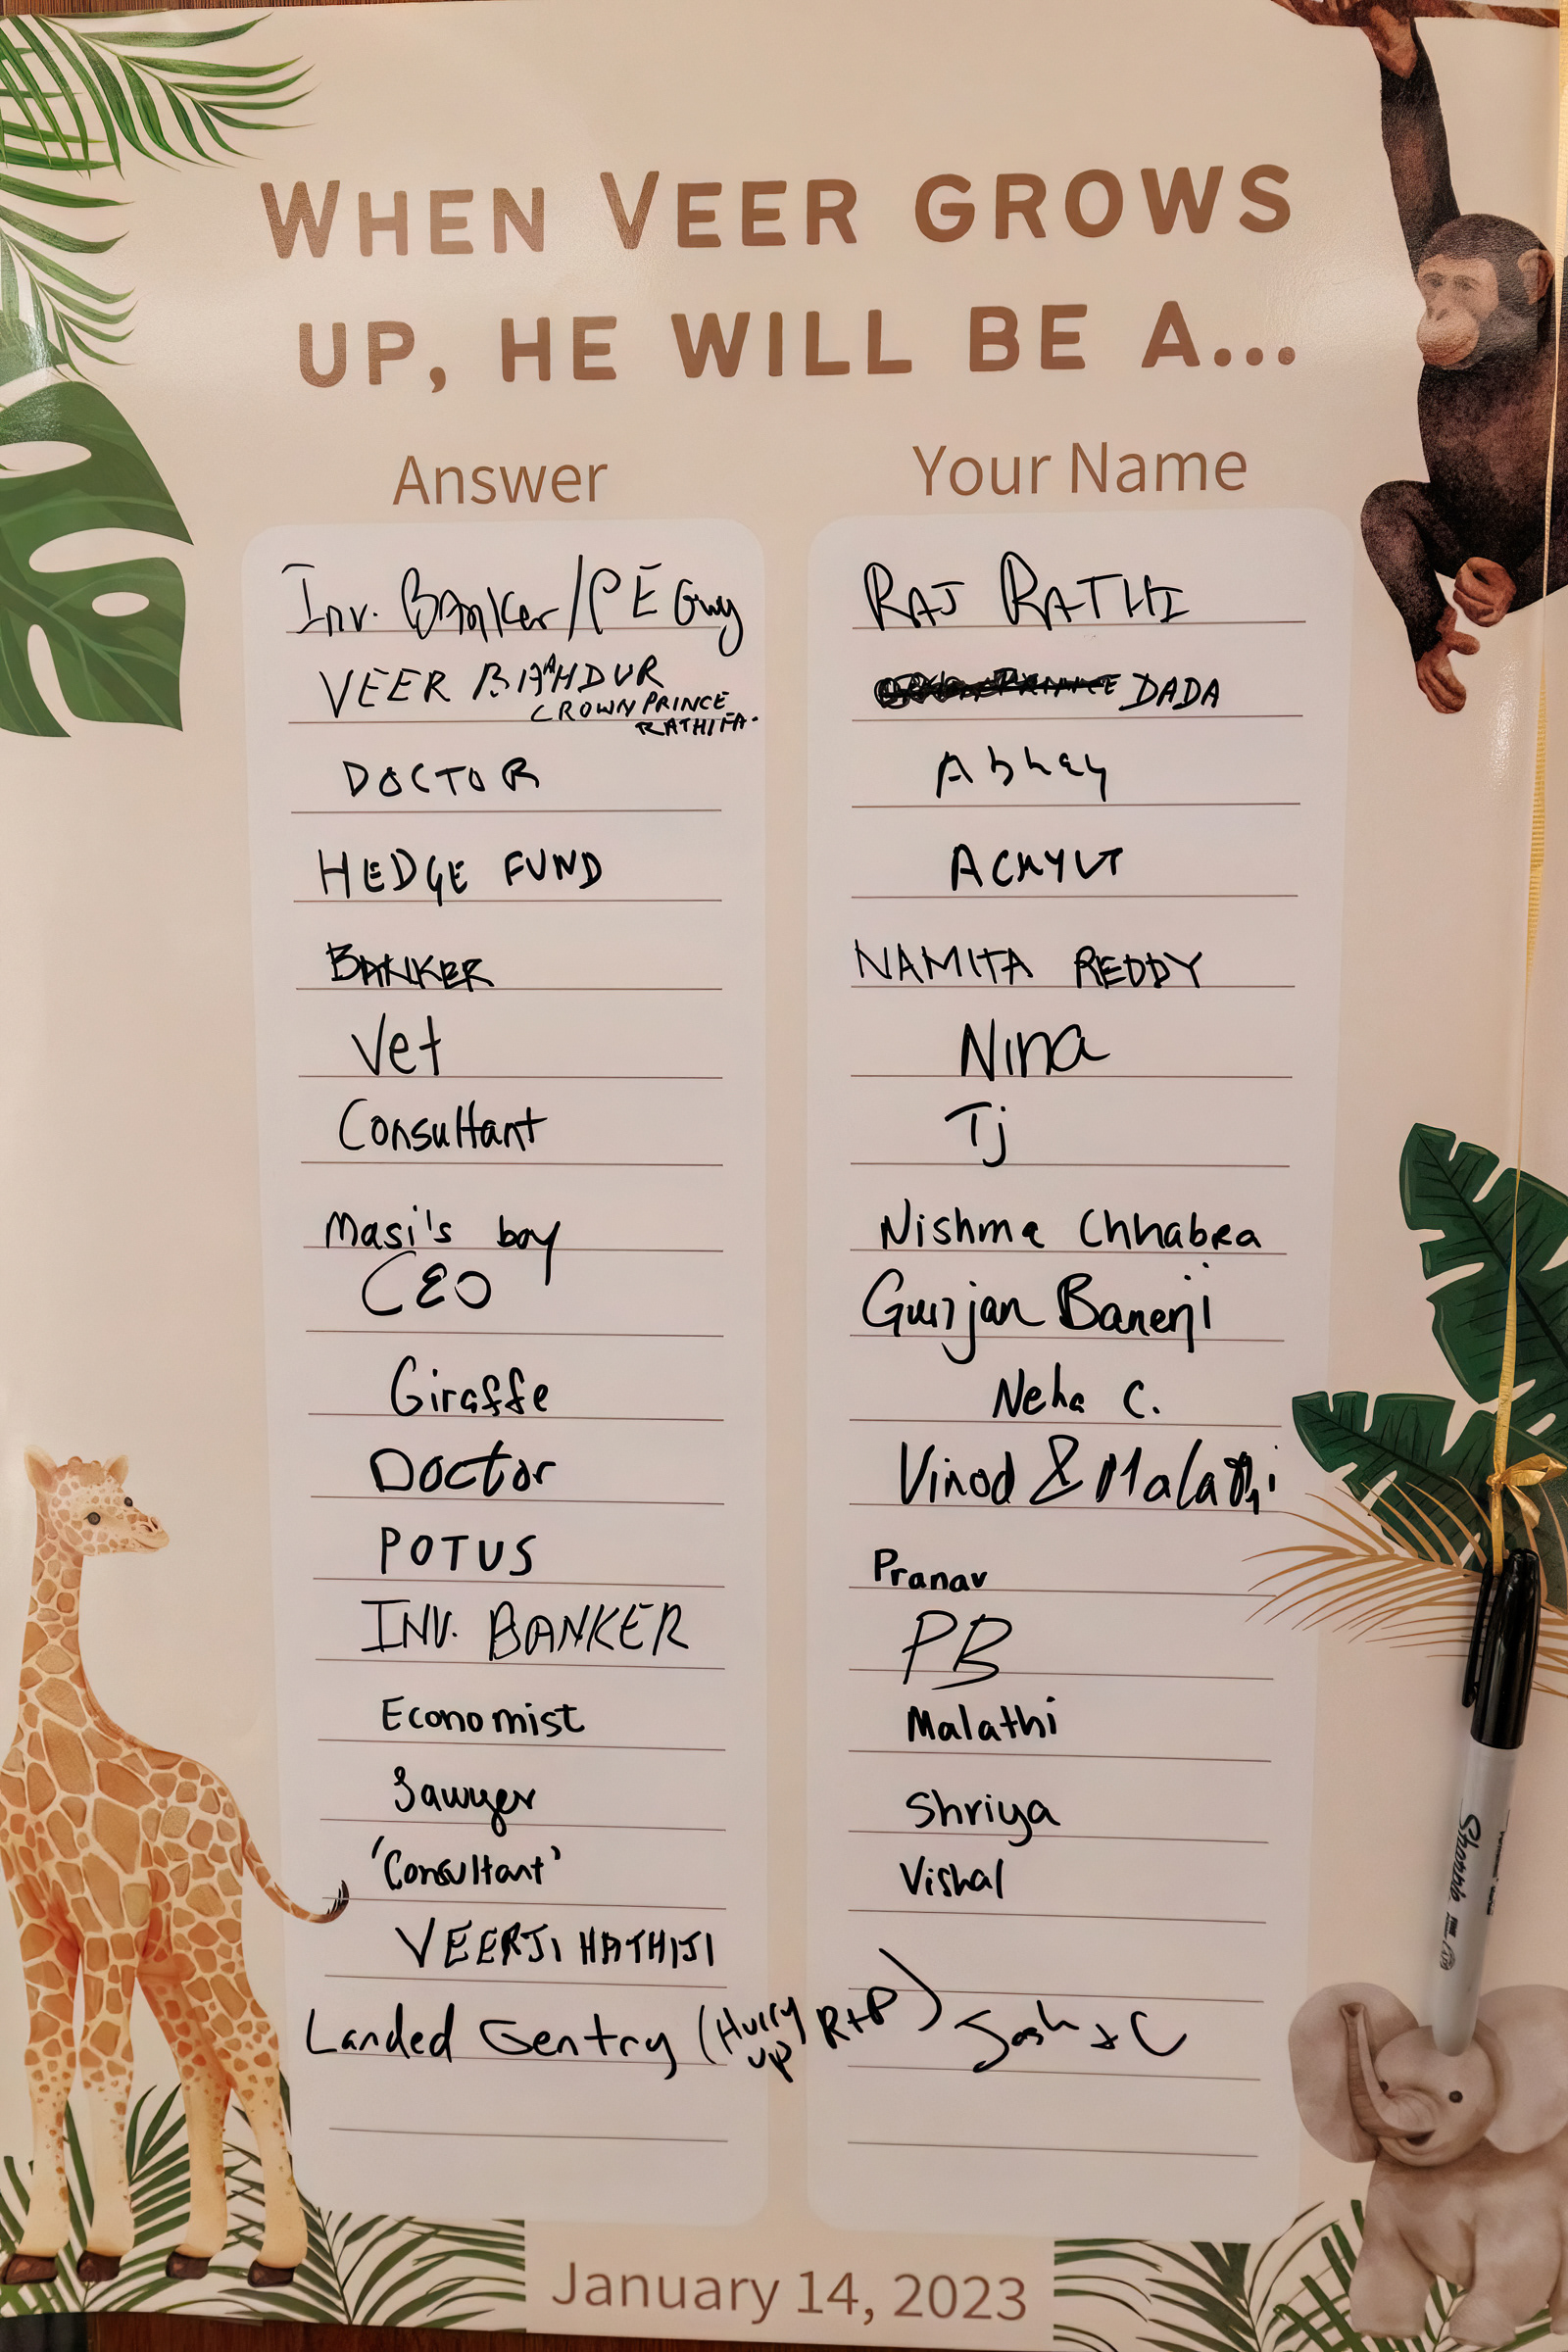 WHEN VEER GROWS
UP, HE WILL BE A...
Answer Your Name
Inv. Banker/PE Guy RAJ RATHI
VEER BAHADUR DADA
CROWN PRINCE
DOCTOR Abhay
HEDGE FUND ACHYUT
BANKER NAMITA REDDY
Vet Nina
Consultant Tj
Masi's boy Nishma Chhabra
CEO Gunjan Banerji
Giraffe Neha C.
Doctor Vinod & Malathi
POTUS Pranav
INV. BANKER PB
Economist Malathi
Lawyer Shriya
'Consultant' Vishal
VEERJI HATHIJI
Landed Gentry (Hurry up R+P) Josh + C
Sharpie
January 14, 2023